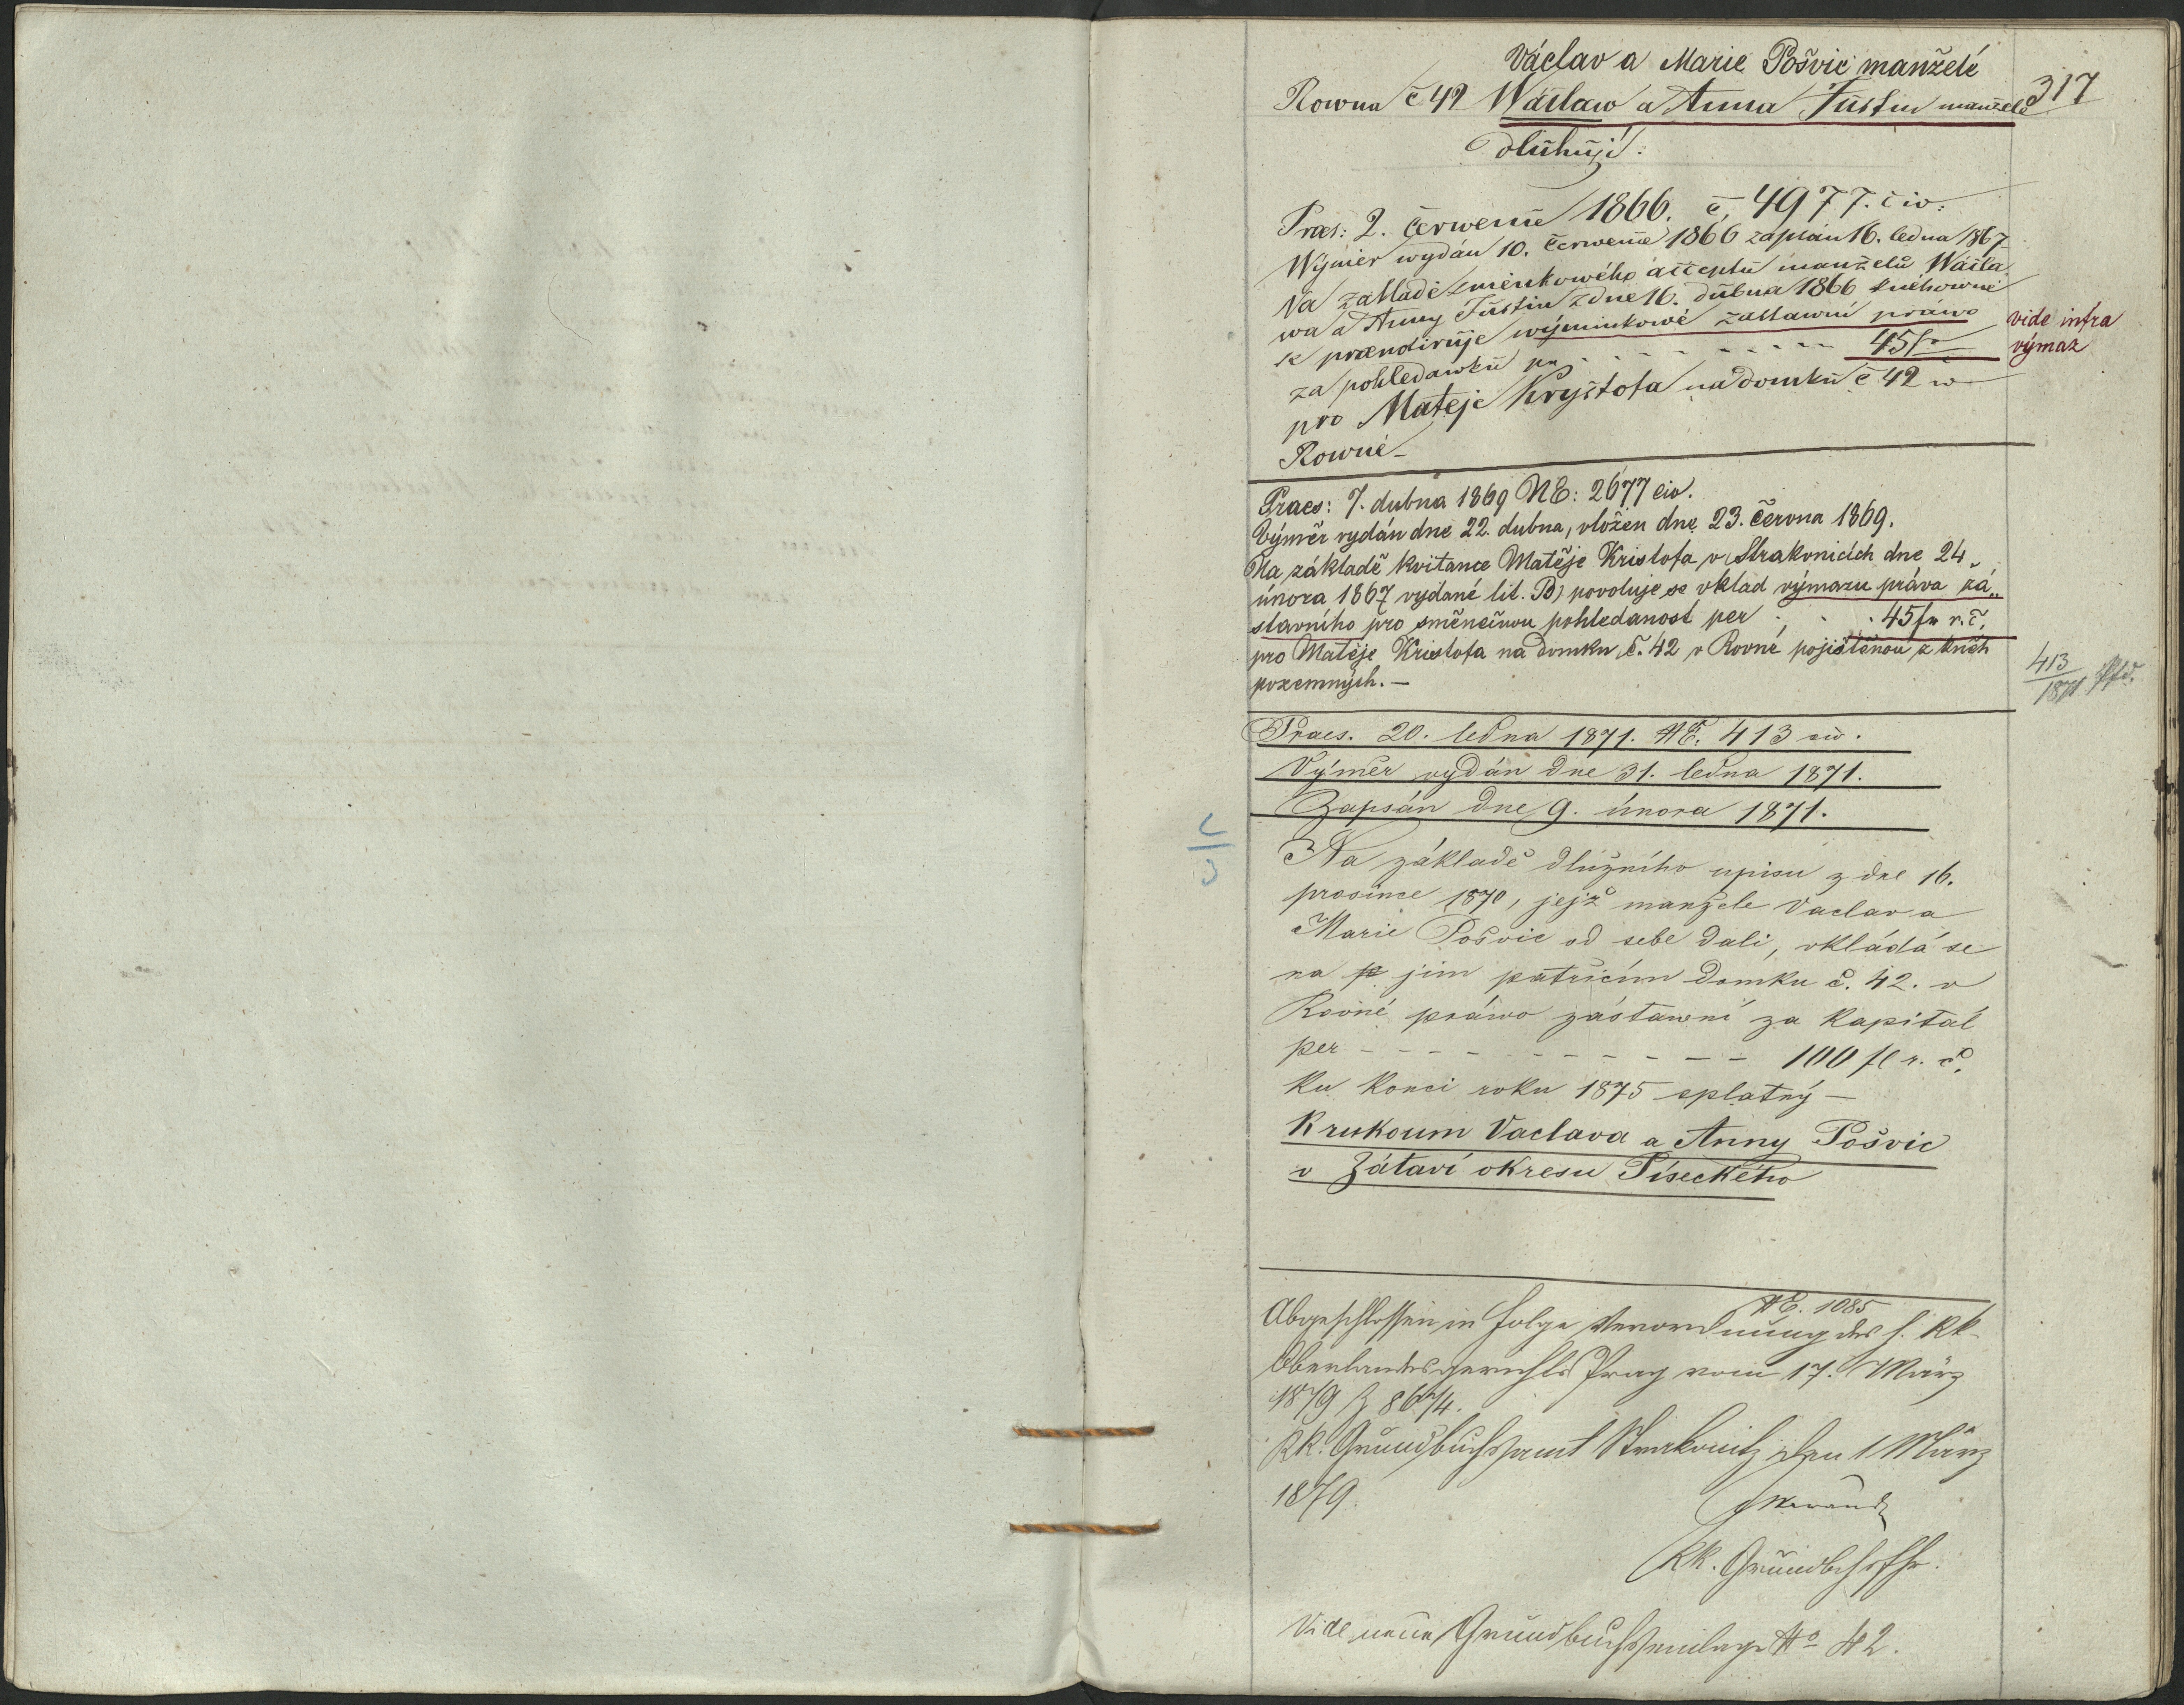 Václav a Marie Pošvic manželé
317
Rowna č 42 Wáclaw a Anna Justin manželé
dluhují:
Praes: 2. červenne 1866. č. 4977. civ:
Wýměr wydán 10. červenne 1866 zapsán 16. ledna 1867
Na základě směnkowého acceptu manželů Wácla
wa a Anny Justin z dne 16. dubna 1866 knihowně
se praenotiruje wýminkowé zástawní práwo
vide infra
výmaz
za pohledawku pr - - - - - - - - - 45 fr
pro Matěje Kryštofa na domku č 42 w
Rowné -
Praes: 7. dubna 1869 NE: 2677 civ.
Výměr vydán dne 22. dubna, vložen dne 23. června 1869.
Na základě kvitance Matěje Kristofa v Strakonicích dne 24.
února 1867 vydané lit. B) povoluje se vklad výmazu práva zá„
stavního pro směnečnou pohledanost per . . . 45 fr r. č.
pro Matěje Kristofa na domku č. 42 v Rovné pojištěnou z kněh
pozemných. —
413
1871
Praes. 20. ledna 1871. NE. 413 civ.
Výměr vydán dne 31. ledna 1871.
Zapsán dne 9. února 1871.
Na základě dlužního upisu z dne 16.
prosince 1870, jejž manžele Vaclav a
Marie Pošvic od sebe dali, vkládá se
na jim patřicím domku č. 42. v
Rovné práwo zástawní za kapitál
per - - - - - - - - - - - 100 fl r. č.
ku konci roku 1875 splatný —
K rukoum Vaclava a Anny Pošvic
v Zátaví okresu Píseckého
NE. 1085
Abgeschlossen in Folge Verordnung des h. kk.
Oberlandesgerichts Prag vom 17. März
1879 Z 8674.
kk. Grundbuchsamt Strakonitz den 1 März
1879.
kk. Grundbchsfhr.
Vide neue Grundbuchseinlage No 42.